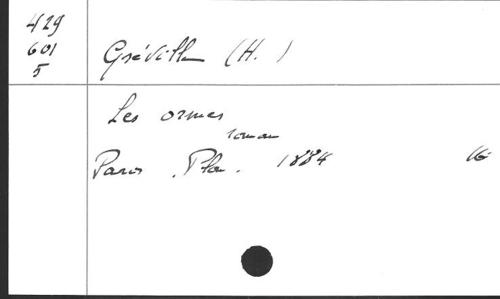 429
601
5
Gréville (H.)
Les ormes
roman
Paris. Plon. 1884 16